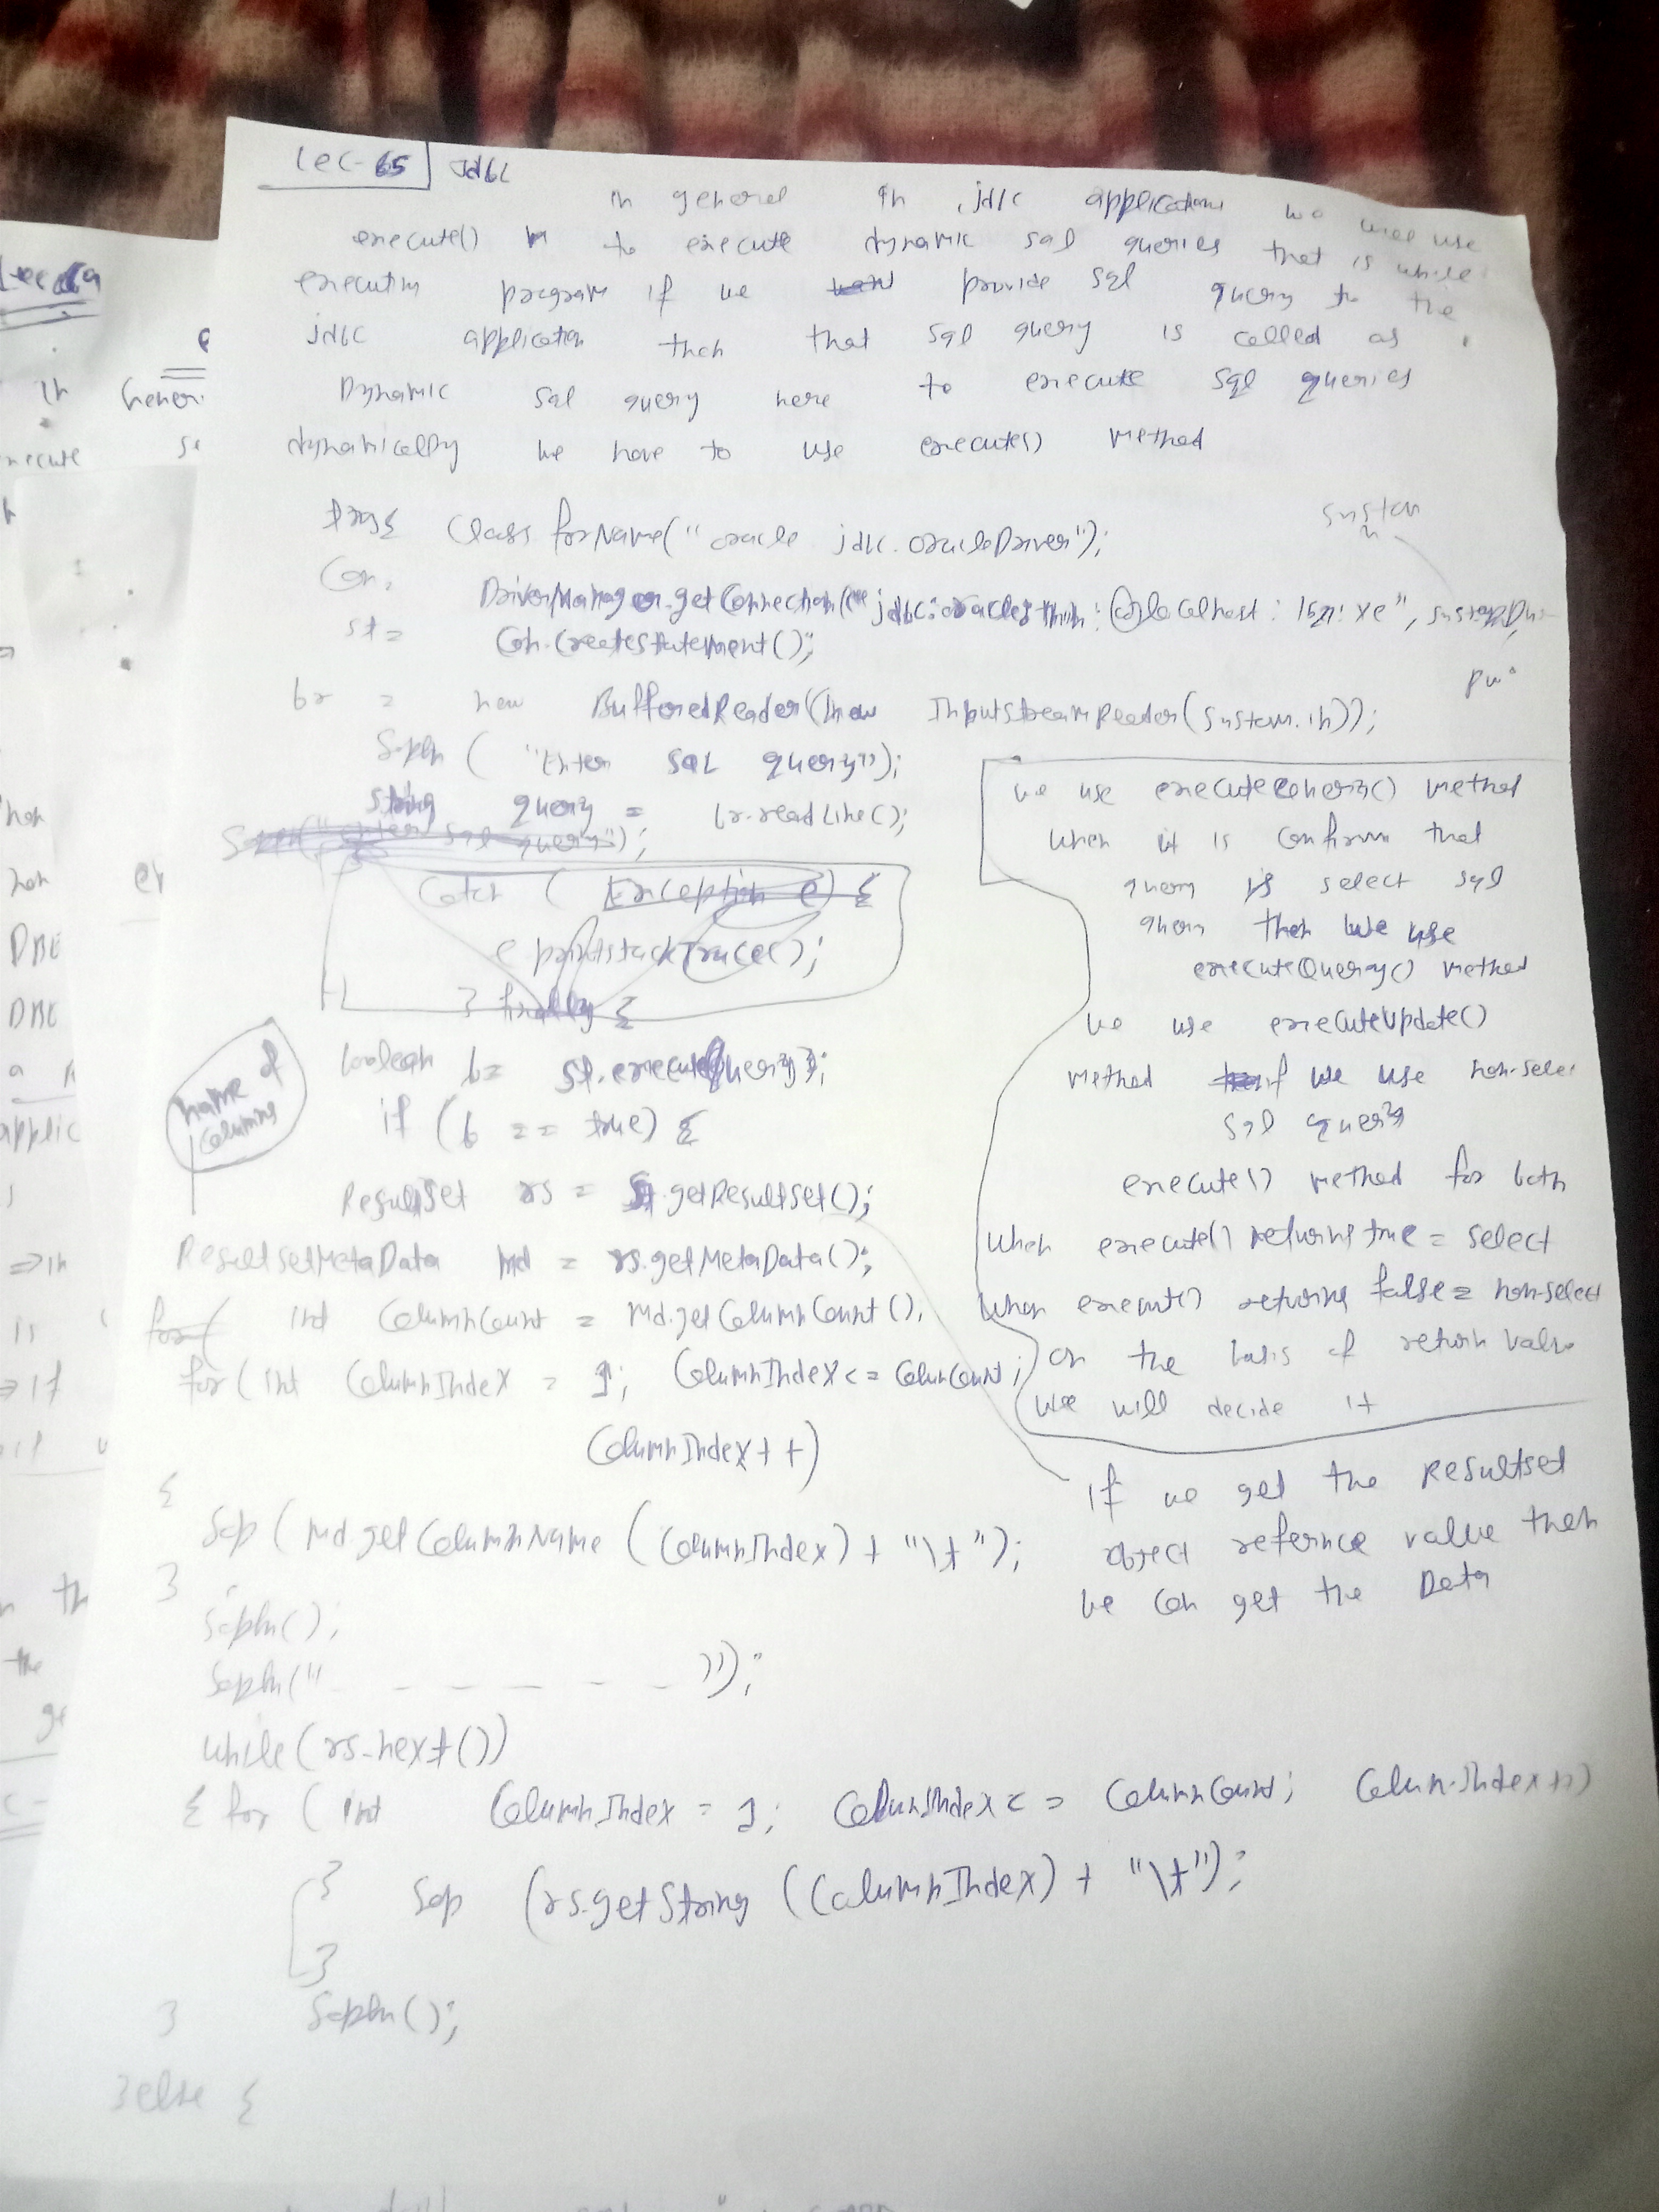 Lec-65 Jdbc
in general in jdbc applications we will use
execute() to execute dynamic sql queries that is while
executing program if we provide sql query to the
jdbc application then that sql query is called as
Dynamic sql query here to execute sql queries
dynamically we have to use execute() method
try{ Class forName("oracle jdbc.oracleDriver");
system
Con, DriverManager.getConnection("jdbc:oracle:thin:@localhost:1521:xe", system
st = Con.createStatement();
pw
br = new BufferedReader(new InputStreamReader(System.in));
Sopln ( "Enter SQL query");
String query = br.readLine();
Catch ( Exception e) {
e printStackTrace();
} finally {
boolean b= st.execute(query);
if (b == true) {
name of
columns
ResultSet rs = st.getResultSet();
ResultSetMetaData md = rs.getMetaData();
for( int ColumnCount = md.getColumnCount();
for(int ColumnIndex = 1; ColumnIndex<= ColumCount;
ColumnIndex++)
{
Sop (md.getColumnName (ColumnIndex) + "\t");
}
Sopln();
Sopln("- - - - - -");
while(rs.next())
{ for (int ColumnIndex = 1; ColumnIndex<= ColumnCount; ColumnIndex++)
{ Sop (rs.getString (ColumnIndex) + "\t");
}
Sopln();
}
}else {
we use executeQuery() method
when it is confirm that
query is select sql
query then we use
executeQuery() method
we use executeUpdate()
method if we use non-selec
sql query
execute() method for both
When execute() returns true = select
When execute() returing false = non-select
on the basis of return value
we will decide it
If we get the Resultset
object refernce value then
we can get the Data
Lec
in Generi
execute
DBC
applic
=> in
is
=> if
the